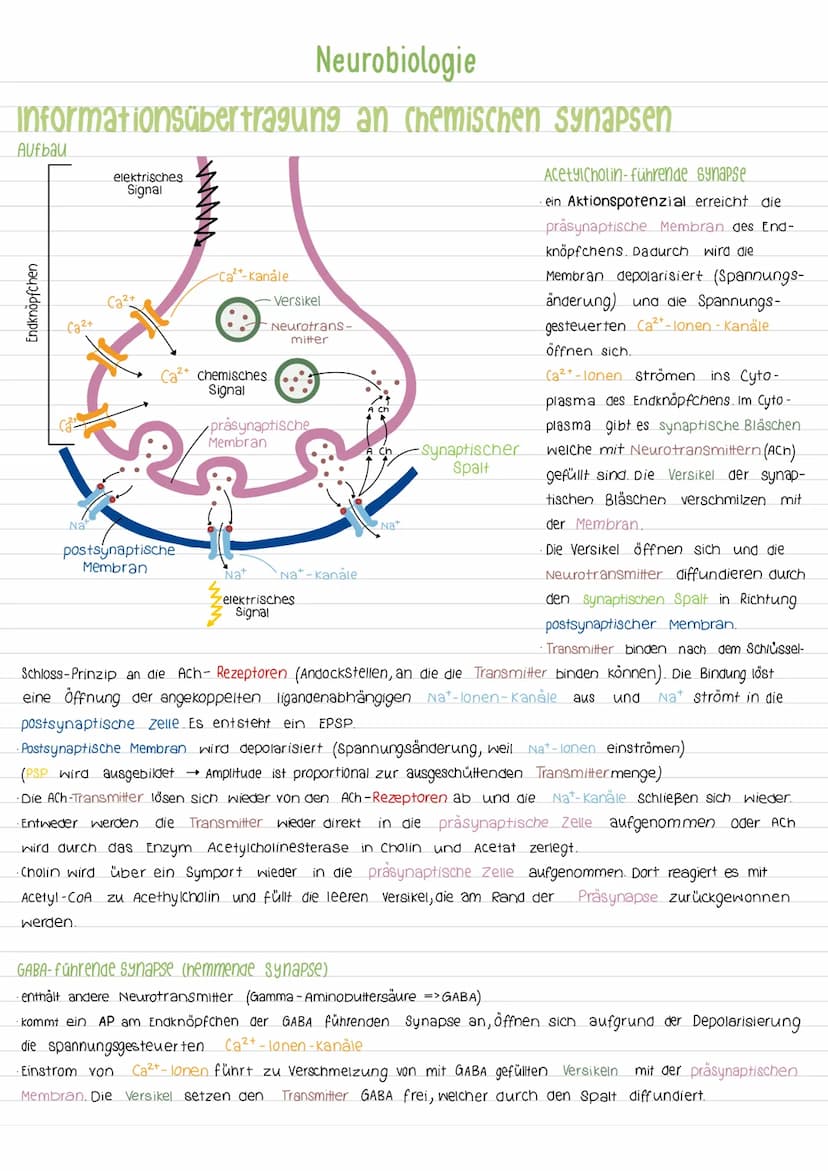 Neurobiologie
Informationsübertragung an chemischen Synapsen
Aufbau
elektrisches
Signal
Endknöpfchen
Ca²⁺-Kanäle
Ca²⁺
Versikel
Ca²⁺
Neurotrans-
mitter
Ca²⁺
chemisches
Signal
A ch
Ca²⁺
präsynaptische
Membran
A ch
synaptischer
Spalt
Na⁺
Na⁺
postsynaptische
Membran
Na⁺
Na⁺-Kanäle
elektrisches
Signal
Acetylcholin-führende Synapse
· ein Aktionspotenzial erreicht die
präsynaptische Membran des End-
knöpfchens. Dadurch wird die
Membran depolarisiert (Spannungs-
änderung) und die Spannungs-
gesteuerten Ca²⁺-Ionen-Kanäle
öffnen sich.
Ca²⁺-Ionen strömen ins Cyto-
plasma des Endknöpfchens. Im Cyto-
plasma gibt es synaptische Bläschen
welche mit Neurotransmittern (ACh)
gefüllt sind. Die Versikel der synap-
tischen Bläschen verschmilzen mit
der Membran.
· Die Versikel öffnen sich und die
Neurotransmitter diffundieren durch
den synaptischen Spalt in Richtung
postsynaptischer Membran.
· Transmitter binden nach dem Schlüssel-
Schloss-Prinzip an die ACh- Rezeptoren (Andockstellen, an die die Transmitter binden können). Die Bindung löst
eine Öffnung der angekoppelten ligandenabhängigen Na⁺-Ionen-Kanäle aus und Na⁺ strömt in die
postsynaptische Zelle. Es entsteht ein EPSP.
· Postsynaptische Membran wird depolarisiert (Spannungsänderung, weil Na⁺-Ionen einströmen)
(PSP wird ausgebildet → Amplitude ist proportional zur ausgeschüttenden Transmittermenge)
· Die ACh-Transmitter lösen sich wieder von den ACh-Rezeptoren ab und die Na⁺-Kanäle schließen sich wieder.
· Entweder werden die Transmitter wieder direkt in die präsynaptische Zelle aufgenommen oder ACh
wird durch das Enzym Acetylcholinesterase in Cholin und Acetat zerlegt.
· Cholin wird über ein Symport wieder in die präsynaptische Zelle aufgenommen. Dort reagiert es mit
Acetyl-CoA zu Acethylcholin und füllt die leeren Versikel, die am Rand der Präsynapse zurückgewonnen
werden.
GABA-führende Synapse (hemmende Synapse)
· enthält andere Neurotransmitter (Gamma-Aminobuttersäure => GABA)
· kommt ein AP am Endknöpfchen der GABA führenden Synapse an, öffnen sich aufgrund der Depolarisierung
die spannungsgesteuerten Ca²⁺-Ionen-Kanäle
· Einstrom von Ca²⁺-Ionen führt zu Verschmelzung von mit GABA gefüllten Versikeln mit der präsynaptischen
Membran. Die Versikel setzen den Transmitter GABA frei, welcher durch den Spalt diffundiert.